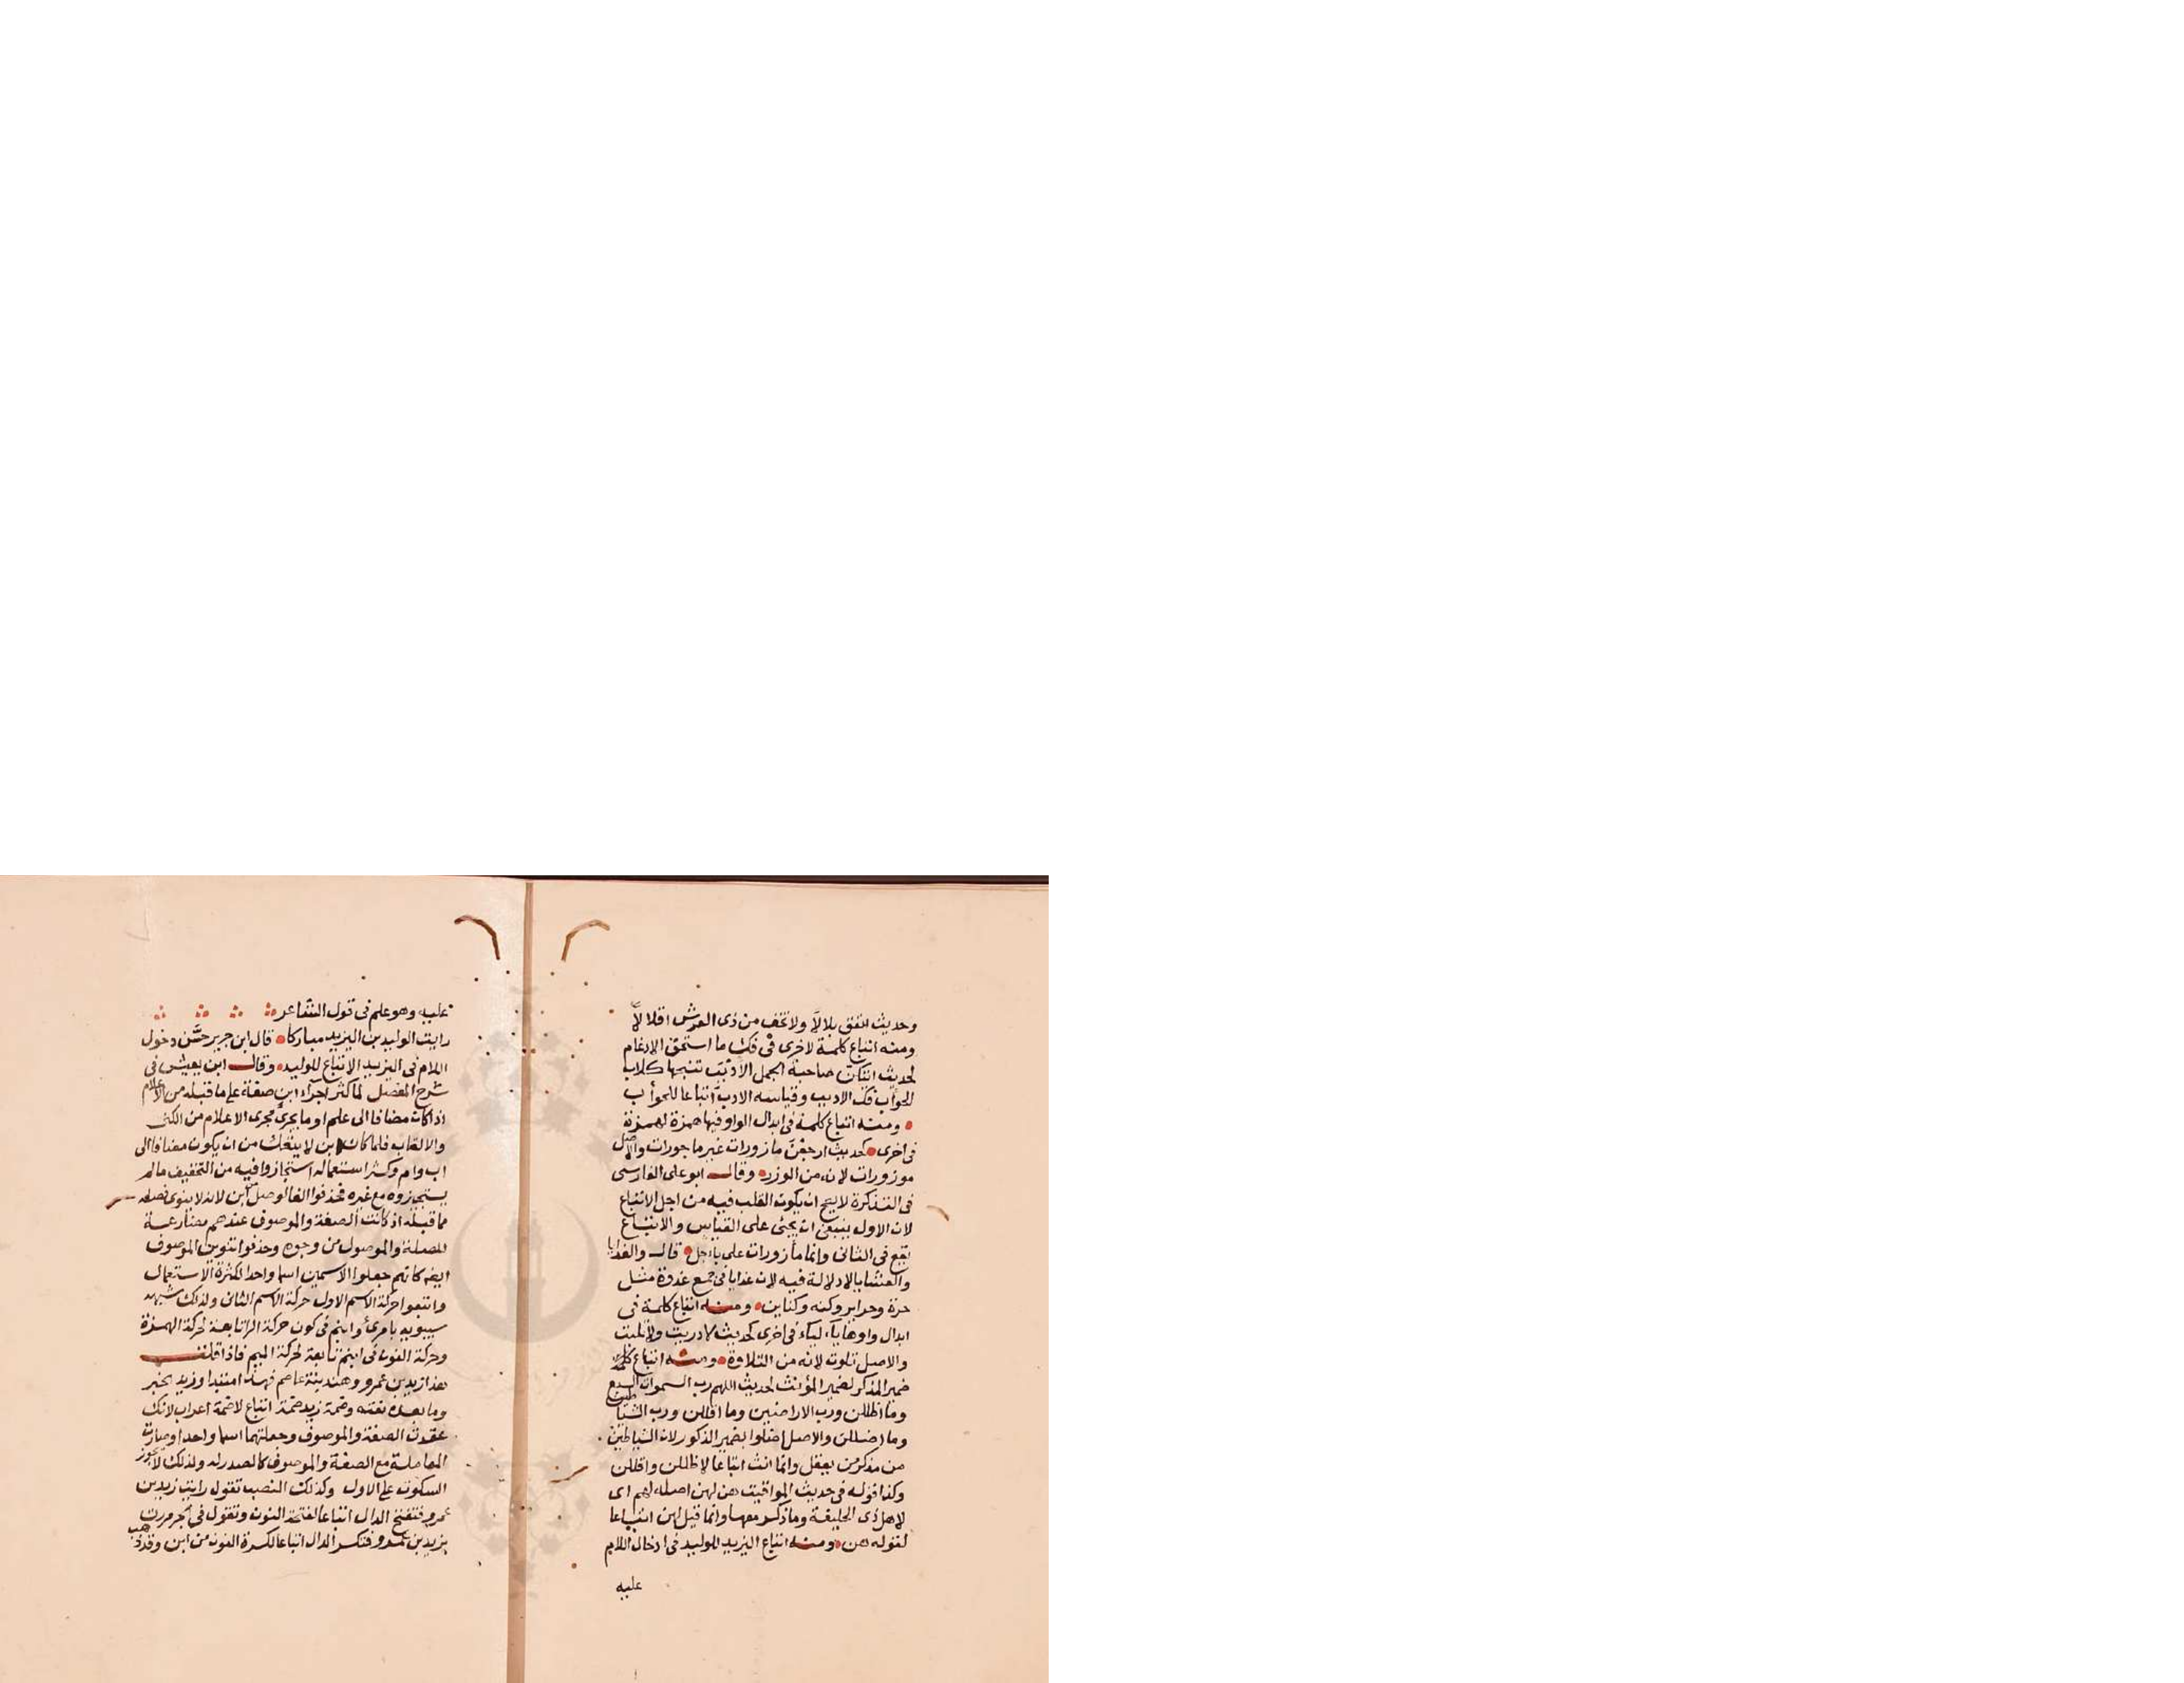 وحديث انفق بلالاً ولا تخف من ذى العرش اقلالاً
ومنه اتباع كلمة لاخرى فى فك ما استحق الادغام
لحديث ايتكن صاحبة الجمل الأدبب تنبحها كلاب
الحوأب فك الادبب وقياسه الادبّ اتباعا للحوأب
ومنه اتباع كلمة فى ابدال الواو فيها همزة لهمزة
فى اخرى كحديث ارجعن مازورات غير ماجورات والاصل
موزورات لانه من الوزر وقال ابو على الفارسى
فى التذكرة لا يصح ان يكون القلب فيه من اجل الاتباع
لان الاول ينبغى ان يجئ على القياس والاتباع
يقع فى الثانى وانما مأزورات على ياجل قال والغدايا
والعشايا لا دلالة فيه لان غدايا فى جمع غدوة مثل
حرة وحراير وكنه وكناين ومنه اتباع كلمة فى
ابدال واوها ياء لياء فى اخرى كحديث لا دريت ولا تليت
والاصل تلوت لانه من التلاوة ومنه اتباع
ضمير المذكر لضمير المؤنث لحديث اللهم رب السموات السبع
وما اظللن ورب الارضين وما اقللن ورب الشياطين
وما اضللن والاصل اضلوا بضمير الذكور لان الشياطين
من مذكر من يعقل وانما انث اتباعا لاظللن واقللن
وكذا قوله فى حديث المواقيت هن لهن اصله لهم اى
لاهل ذى الحليفة وما ذكر معها وانما قيل لهن اتباعا
لقوله هن ومنه اتباع اليزيد للوليد فى ادخال اللام
عليه
عليه وهو علم فى قول الشاعر
رايت الوليد بن اليزيد مباركا قال ابن جرير حسّن دخول
اللام فى اليزيد الاتباع للوليد وقال ابن يعيش فى
شرح المفصل لما كثر اجراء ابن صفة على ما قبله من الاعلام
اذا كان مضافا الى علم او ما يجرى مجرى الاعلام من الكنى
والالقاب فلما كان ابن لا ينفك من ان يكون مضافا الى
اب وام وكثر استعماله استجازوا فيه من التخفيف ما لم
يستجيزوه مع غيره فحذفوا الف الوصل من ابن لانه لا ينوى فصله
مما قبله اذ كانت الصفة والموصوف عندهم مضارعة
للصلة والموصول من وجوه وحذفوا تنوين الموصوف
ايضا كانهم جعلوا الاسمين اسما واحدا لكثرة الاستعمال
واتبعوا حركة الاسم الاول حركة الاسم الثانى ولذلك شبهه
سيبويه بامرئ وابنم فى كون حركة الرا تابعة لحركة الهمزة
وحركة النون فى ابنم تابعة لحركة الميم فاذا قلت
هذا زيد بن عمرو وهند بنة عاصم فهذا مبتدا وزيد الخبر
وما بعده نعته وضمة زيد ضمة اتباع لا ضمة اعراب لانك
عقدت الصفة والموصوف وجعلتهما اسما واحدا وصارت
المعاملة مع الصفة والموصوف كالصدر له ولذلك لا يجوز
السكوت على الاول وكذلك النصب تقول رايت زيد بن
عمرو فتفتح الدال اتباعا لفتحة النون وتقول فى الجر مررت
بزيد بن عمرو فتكسر الدال اتباعا لكسرة النون من ابن وقد ذهب